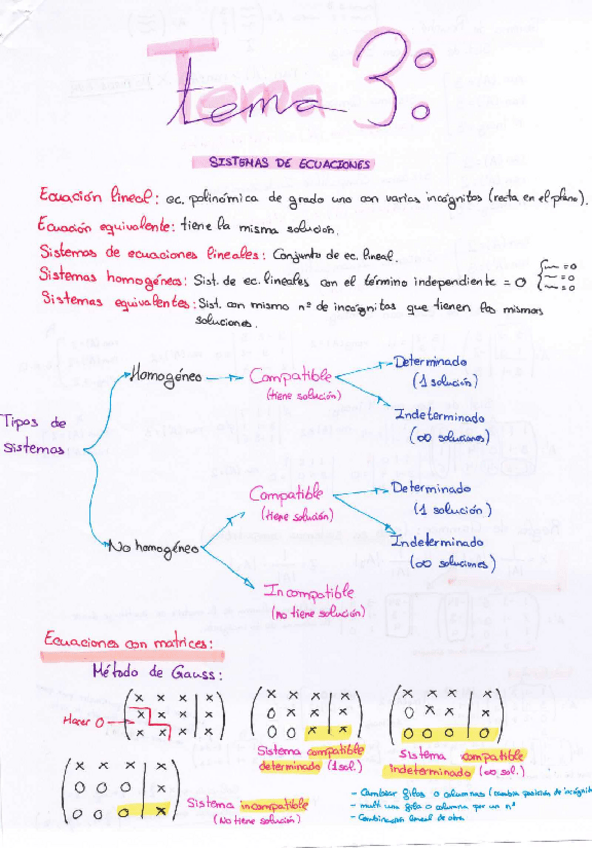 Tema 3:
SISTEMAS DE ECUACIONES
Ecuación lineal: ec. polinómica de grado uno con varias incógnitas (recta en el plano).
Ecuación equivalente: tiene la misma solución.
Sistemas de ecuaciones lineales: Conjunto de ec. lineal.
Sistemas homogéneos: Sist. de ec. lineales con el término independiente = 0 { = 0 = 0 = 0
Sistemas equivalentes: Sist. con mismo nº de incógnitas que tienen las mismas
soluciones.
Tipos de
sistemas
Homogéneo
Compatible
(tiene solución)
Determinado
(1 solución)
Indeterminado
(∞ soluciones)
No homogéneo
Compatible
(tiene solución)
Determinado
(1 solución)
Indeterminado
(∞ soluciones)
Incompatible
(no tiene solución)
Ecuaciones con matrices:
Método de Gauss:
Hacer 0
x x x | x
x x x | x
x x x | x
x x x | x
0 x x | x
0 0 x | x
Sistema compatible
determinado (1 sol.)
x x x | x
0 x x | x
0 0 0 | 0
Sistema compatible
indeterminado (∞ sol.)
x x x | x
0 0 0 | x
0 0 0 | x
Sistema incompatible
(No tiene solución)
- Cambiar filas o columnas (cambia posición de incógnit
- mult una fila o columna por un nº
- Combinación lineal de otra